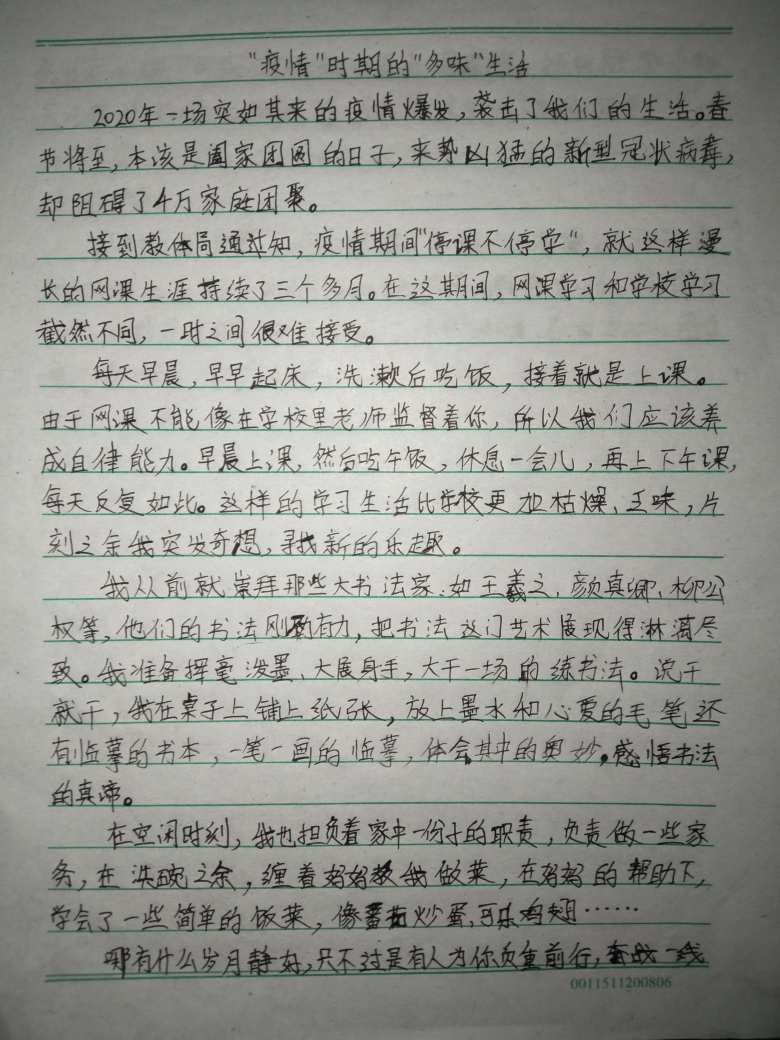 "疫情"时期的"多味"生活
2020年一场突如其来的疫情爆发,袭击了我们的生活。春
节将至,本该是阖家团圆的日子,来势凶猛的新型冠状病毒,
却阻碍了4万家庭团聚。
接到教体局通过知,疫情期间"停课不停学",就这样漫
长的网课生涯持续了三个多月。在这期间,网课学习和学校学习
截然不同,一时之间很难接受。
每天早晨,早早起床,洗漱后吃饭,接着就是上课。
由于网课不能像在学校里老师监督着你,所以我们应该养
成自律能力。早晨上课,然后吃午饭,休息一会儿,再上下午课,
每天反复如此。这样的学习生活比学校更加枯燥、乏味,片
刻之余我突发奇想,寻找新的乐趣。
我从前就崇拜那些大书法家:如王羲之、颜真卿、柳公
权等,他们的书法刚劲有力,把书法这门艺术展现得淋漓尽
致。我准备挥毫泼墨、大展身手,大干一场的练书法。说干
就干,我在桌子上铺上纸张,放上墨水和心爱的毛笔还
有临摹的书本,一笔一画的临摹,体会其中的奥妙。感悟书法
的真谛。
在空闲时刻,我也担负着家中一份子的职责,负责做一些家
务,在洗碗之余,缠着妈妈教我做菜,在妈妈的帮助下,
学会了一些简单的饭菜,像番茄炒蛋,可乐鸡翅……
哪有什么岁月静好,只不过是有人为你负重前行,奋战一线
0011511200806